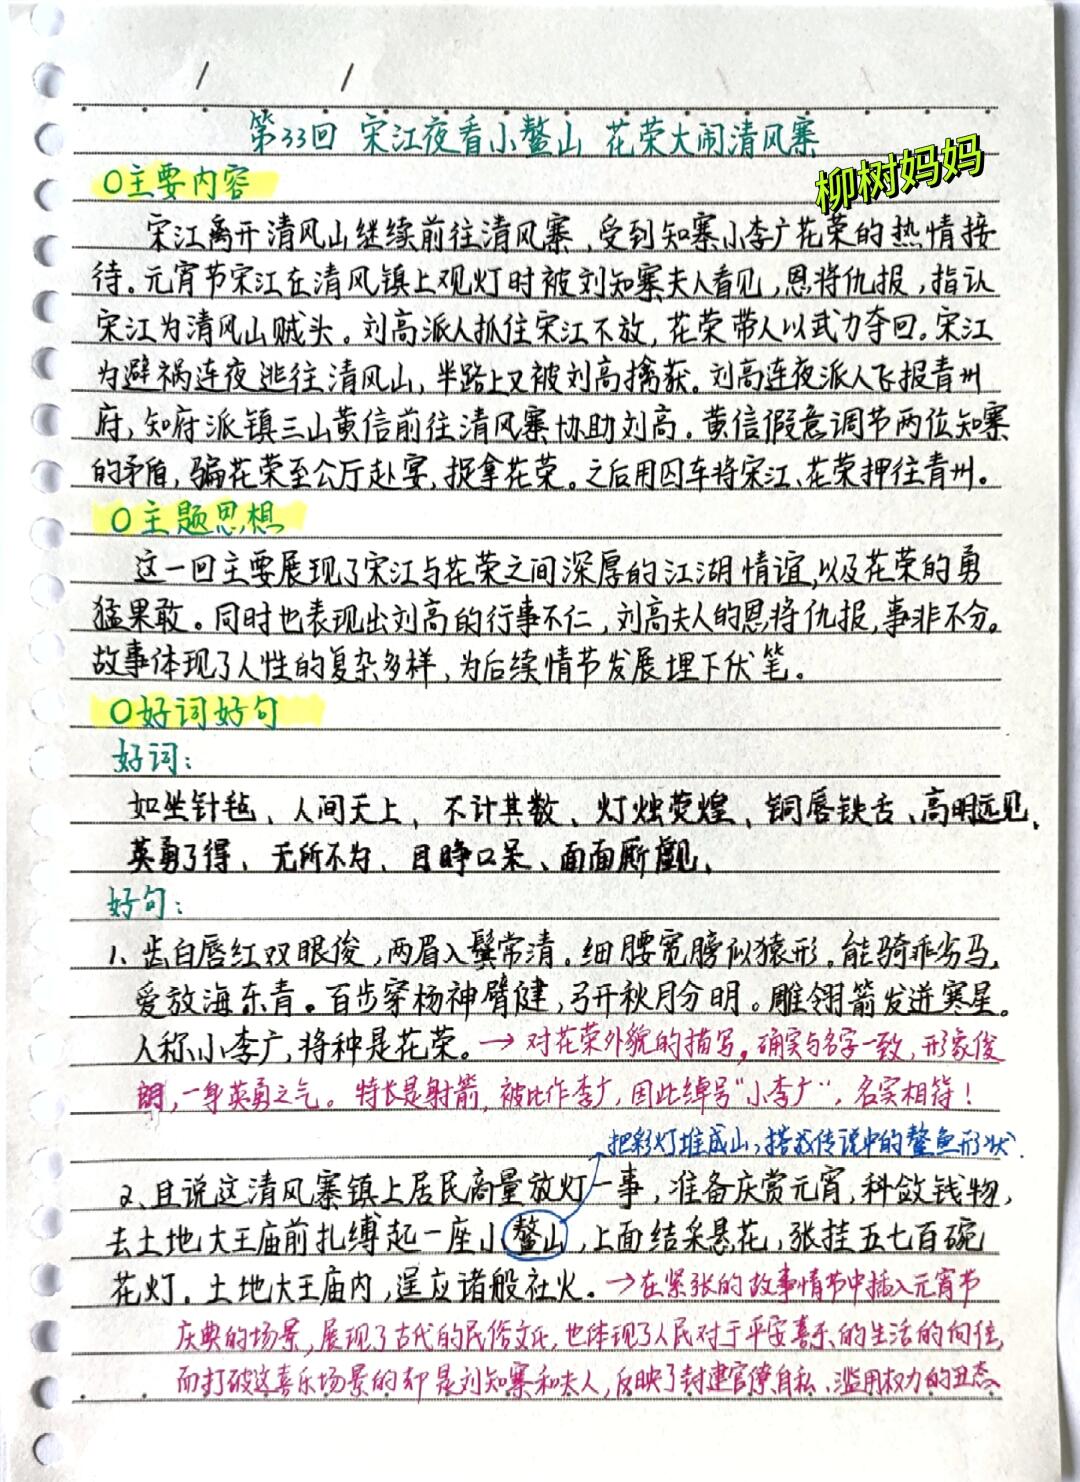 第33回 宋江夜看小鳌山 花荣大闹清风寨
柳树妈妈
○主要内容
宋江离开清风山继续前往清风寨,受到知寨小李广花荣的热情接
待。元宵节宋江在清风镇上观灯时被刘知寨夫人看见,恩将仇报,指认
宋江为清风山贼头。刘高派人抓住宋江不放,花荣带人以武力夺回。宋江
为避祸连夜逃往清风山,半路上又被刘高擒获。刘高连夜派人飞报青州
府,知府派镇三山黄信前往清风寨协助刘高。黄信假意调节两位知寨
的矛盾,骗花荣至公厅赴宴,捉拿花荣。之后用囚车将宋江、花荣押往青州。
○主题思想
这一回主要展现了宋江与花荣之间深厚的江湖情谊,以及花荣的勇
猛果敢。同时也表现出刘高的行事不仁,刘高夫人的恩将仇报,事非不分。
故事体现了人性的复杂多样,为后续情节发展埋下伏笔。
○好词好句
好词:
如坐针毡、人间天上、不计其数、灯烛荧煌、铜唇铁舌、高明远见、
英勇了得、无所不为、目睁口呆、面面厮觑、
好句:
1、齿白唇红双眼俊,两眉入鬓常清。细腰宽膀似猿形。能骑乖劣马,
爱放海东青。百步穿杨神臂健,弓开秋月分明。雕翎箭发迸寒星。
人称小李广,将种是花荣。→对花荣外貌的描写,确实与名字一致,形象俊
朗,一身英勇之气。特长是射箭,被比作李广,因此绰号"小李广",名实相符!
把彩灯堆成山,搭成传说中的鳌鱼形状.
2、且说这清风寨镇上居民商量放灯一事,准备庆赏元宵,科敛钱物,
去土地大王庙前扎缚起一座小鳌山,上面结采悬花,张挂五七百碗
花灯。土地大王庙内,逞应诸般社火。→在紧张的故事情节中插入元宵节
庆典的场景,展现了古代的民俗文化,也体现了人民对于平安喜乐的生活的向往,
而打破这喜乐场景的却是刘知寨和夫人,反映了封建官僚自私、滥用权力的丑态